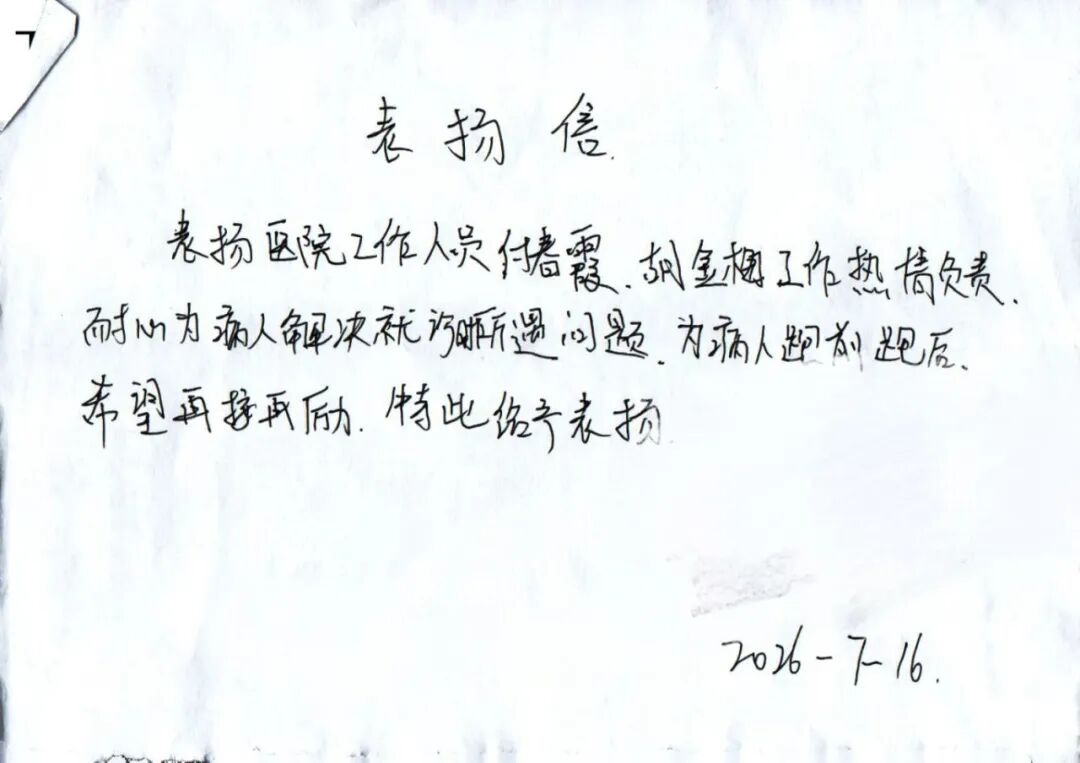 表扬信.
表扬医院工作人员付春霞、胡金梅工作热情负责、
耐心为病人解决就诊时所遇问题、为病人跑前跑后、
希望再接再励、特此给予表扬.
2026-7-16.